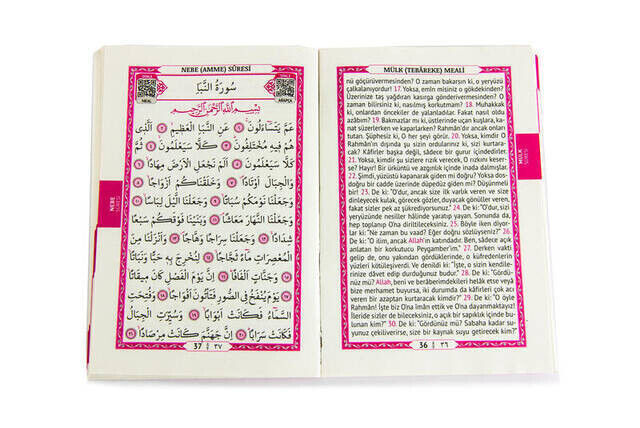 MÜLK (TEBÂREKE) MEALİ
nü göçürüvermesinden? O zaman bakarsın ki, o yeryüzü
çalkalanıyordur! 17. Yoksa, emin misiniz o gökdekinden?
Üzerinize taş yağdıran kasırga göndermesinden? O
zaman bilirsiniz ki, nasılmış korkutmam? 18. Muhakkak
ki, onlardan öncekiler de yalanladılar. Fakat nasıl oldu
azâbım? 19. Bakmazlar mı ki, üstlerinde uçan kuşlara, ka-
nat süzerlerken ve kaparlarken? Rahmân'dır ancak onları
tutan. Şüphesiz ki, O her şeyi görür. 20. Yoksa, kimdir O
Rahmân'ın dışında şu sizin ordularınız ki, sizi kurtara-
cak? Kâfirler başka değil, sâdece bir gurur içindedirler.
21. Yoksa, kimdir şu sizlere rızık verecek, O rızkını kese-
rse? Hayır! Bir ürküntü ve azgınlık içinde inada dalmışlar.
22. Şimdi, yüzüstü kapanarak giden mi doğru? Yoksa dos-
doğru bir cadde üzerinde düpedüz giden mi? Düşünmeli
bir! 23. De ki: "O'dur, ancak size ilk varlık veren ve size
dinleyecek kulak, görecek gözler, duyacak gönüller veren,
fakat sizler pek az şükrediyorsunuz." 24. De ki: "O'dur, sizi
yeryüzünde nesiller hâlinde yaratıp yayan. Sonunda da,
hep toplanıp O'na dirîltileceksiniz. 25. Böyle iken diyor-
lar ki: "Ne zaman bu vaad? Eğer doğru sözlüyseniz?" 26.
De ki: "O ilim, ancak Allah'ın katındadır. Ben, sâdece açık
anlatan bir korkutucuyum. Peygamber'im." 27. Derken vakti
gelip de, onu yakından gördüklerinde, o küfredenlerin
yüzleri kötüleşiverdi. Ve denildi ki: "İşte, o sizin kendile-
rinize dâvet edip durduğunuz budur." 28. De ki: "Gördü-
nüz mü? Allah, beni ve beraberimdekileri helâk etse veya
bize merhamet buyursa, iki durumda da kâfirleri çok acı
veren bir azaptan kurtaracak kimdir? 29. De ki: "O öyle
Rahmân! İşte biz O'na îmân ettik ve O'na dayanmaktayız!
İleride sizler de bileceksiniz, o açık bir sapıklık içinde bu-
lunan kim?" 30. De ki: "Gördünüz mü? Sabaha kadar su-
yunuz çekiliverirse, size bir kaynak suyu getirecek kim?"
36 ٣٦
MÜLK
SÛRESİ
NEBE (AMME) SÛRESİ
سورة النبإ
MEAL
ARAPÇA
بسم الله الرحمن الرحيم
عَمَّ يَتَسَاءَلُونَ ١ عَنِ النَّبَاِ الْعَظِيمِ ٢ اَلَّذِى
هُمْ فِيهِ مُخْتَلِفُونَ ٣ كَلَّا سَيَعْلَمُونَ ٤ ثُمَّ
كَلَّا سَيَعْلَمُونَ ٥ اَلَمْ نَجْعَلِ الْاَرْضَ مِهَادًا ٦
وَالْجِبَالَ اَوْتَادًا ٧ وَخَلَقْنَاكُمْ اَزْوَاجًا ٨
وَجَعَلْنَا نَوْمَكُمْ سُبَاتًا ٩ وَجَعَلْنَا الَّيْلَ لِبَاسًا ١٠
وَجَعَلْنَا النَّهَارَ مَعَاشًا ١١ وَبَنَيْنَا فَوْقَكُمْ سَبْعًا
شِدَادًا ١٢ وَجَعَلْنَا سِرَاجًا وَهَّاجًا ١٣ وَاَنْزَلْنَا مِنَ
الْمُعْصِرَاتِ مَاءً ثَجَّاجًا ١٤ لِنُخْرِجَ بِهِ حَبًّا وَنَبَاتًا ١٥
وَجَنَّاتٍ اَلْفَافًا ١٦ اِنَّ يَوْمَ الْفَصْلِ كَانَ مِيقَاتًا ١٧
يَوْمَ يُنْفَخُ فِى الصُّورِ فَتَاْتُونَ اَفْوَاجًا ١٨ وَفُتِحَتِ
السَّمَاءُ فَكَانَتْ اَبْوَابًا ١٩ وَسُيِّرَتِ الْجِبَالُ
فَكَانَتْ سَرَابًا ٢٠ اِنَّ جَهَنَّمَ كَانَتْ مِرْصَادًا ٢١
37 ٣٧
NEBE
SÛRESİ